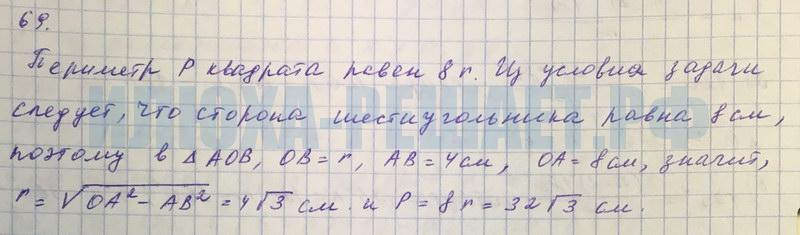 69.
Периметр P квадрата равен 8r. Из условия задачи
следует, что сторона шестиугольника равна 8 см,
поэтому в △ AOB, OB = r, AB = 4 см, OA = 8 см, значит,
r = √(OA² - AB²) = 4√3 см. и P = 8r = 32√3 см.
ИЛЮХА-РЕШАЕТ.РФ